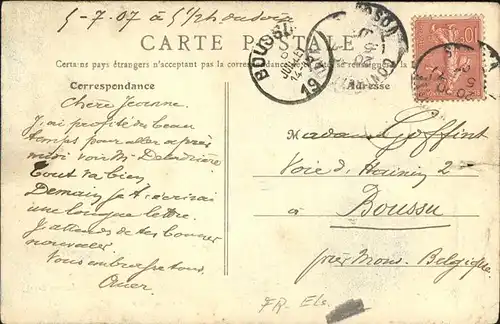 5-7.07 à 5 1/2 h. du soir
CARTE POSTALE
Certains pays étrangers n'acceptent pas la correspondance se renseigner à la
Correspondance
Adresse
BOUSSU
JUIL
14
19
10
Chère Jeanne.
J'ai profité du beau
temps pour aller après
midi voir
tout va bien
Demain je t'écrirai
une longue lettre.
J'attends de tes bonnes
nouvelles
Vous embrasse tous.
Madame Goffint
Voie d. Hainin 2
à
Boussu
près Mons. Belgique.
FR- Etr.